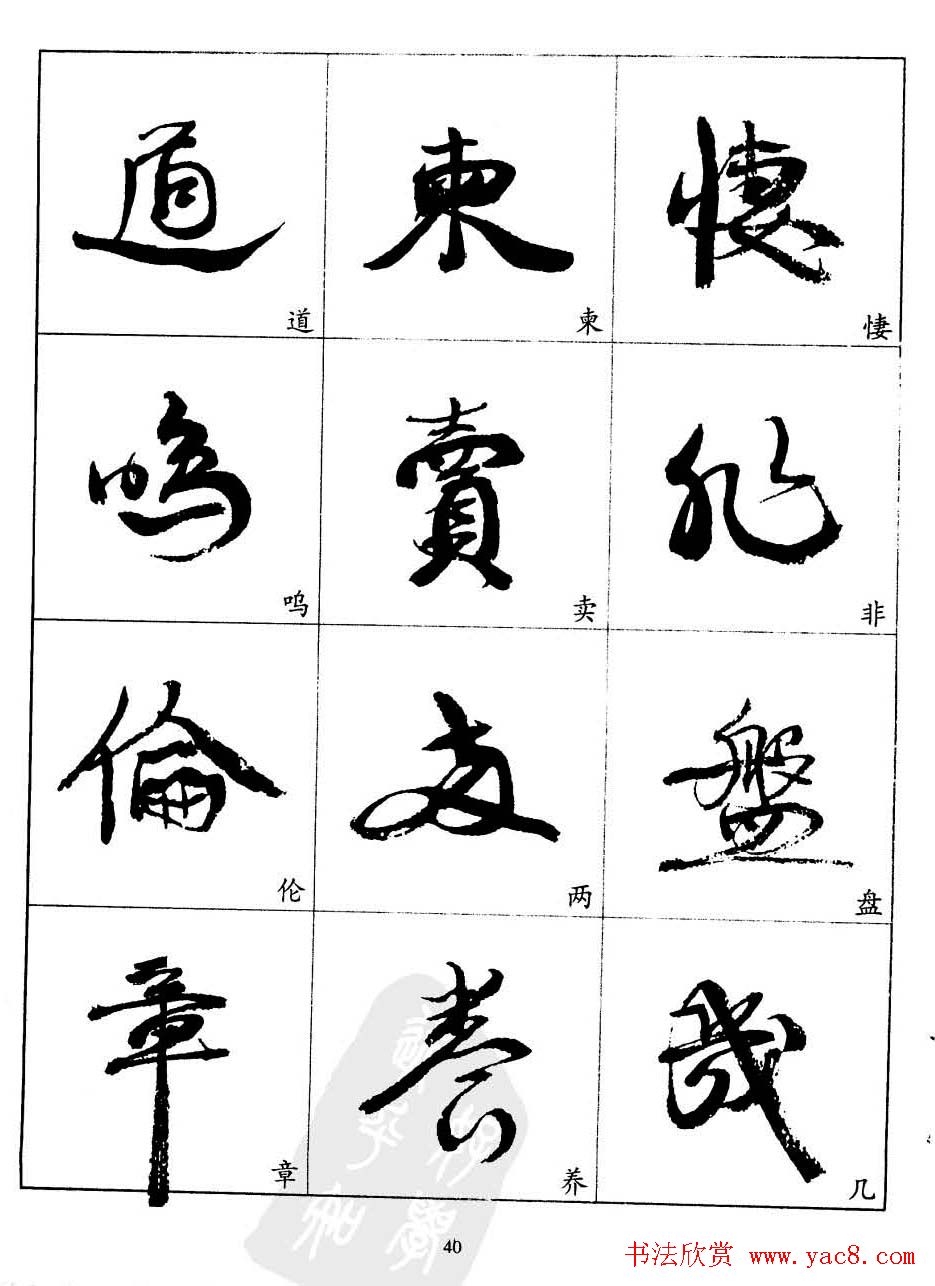 道 柬 悽
道 柬 悽
嗚 賣 非
呜 卖 非
倫 两 盤
伦 两 盘
章 養 幾
章 养 几
40
书法欣赏 www.yac8.com